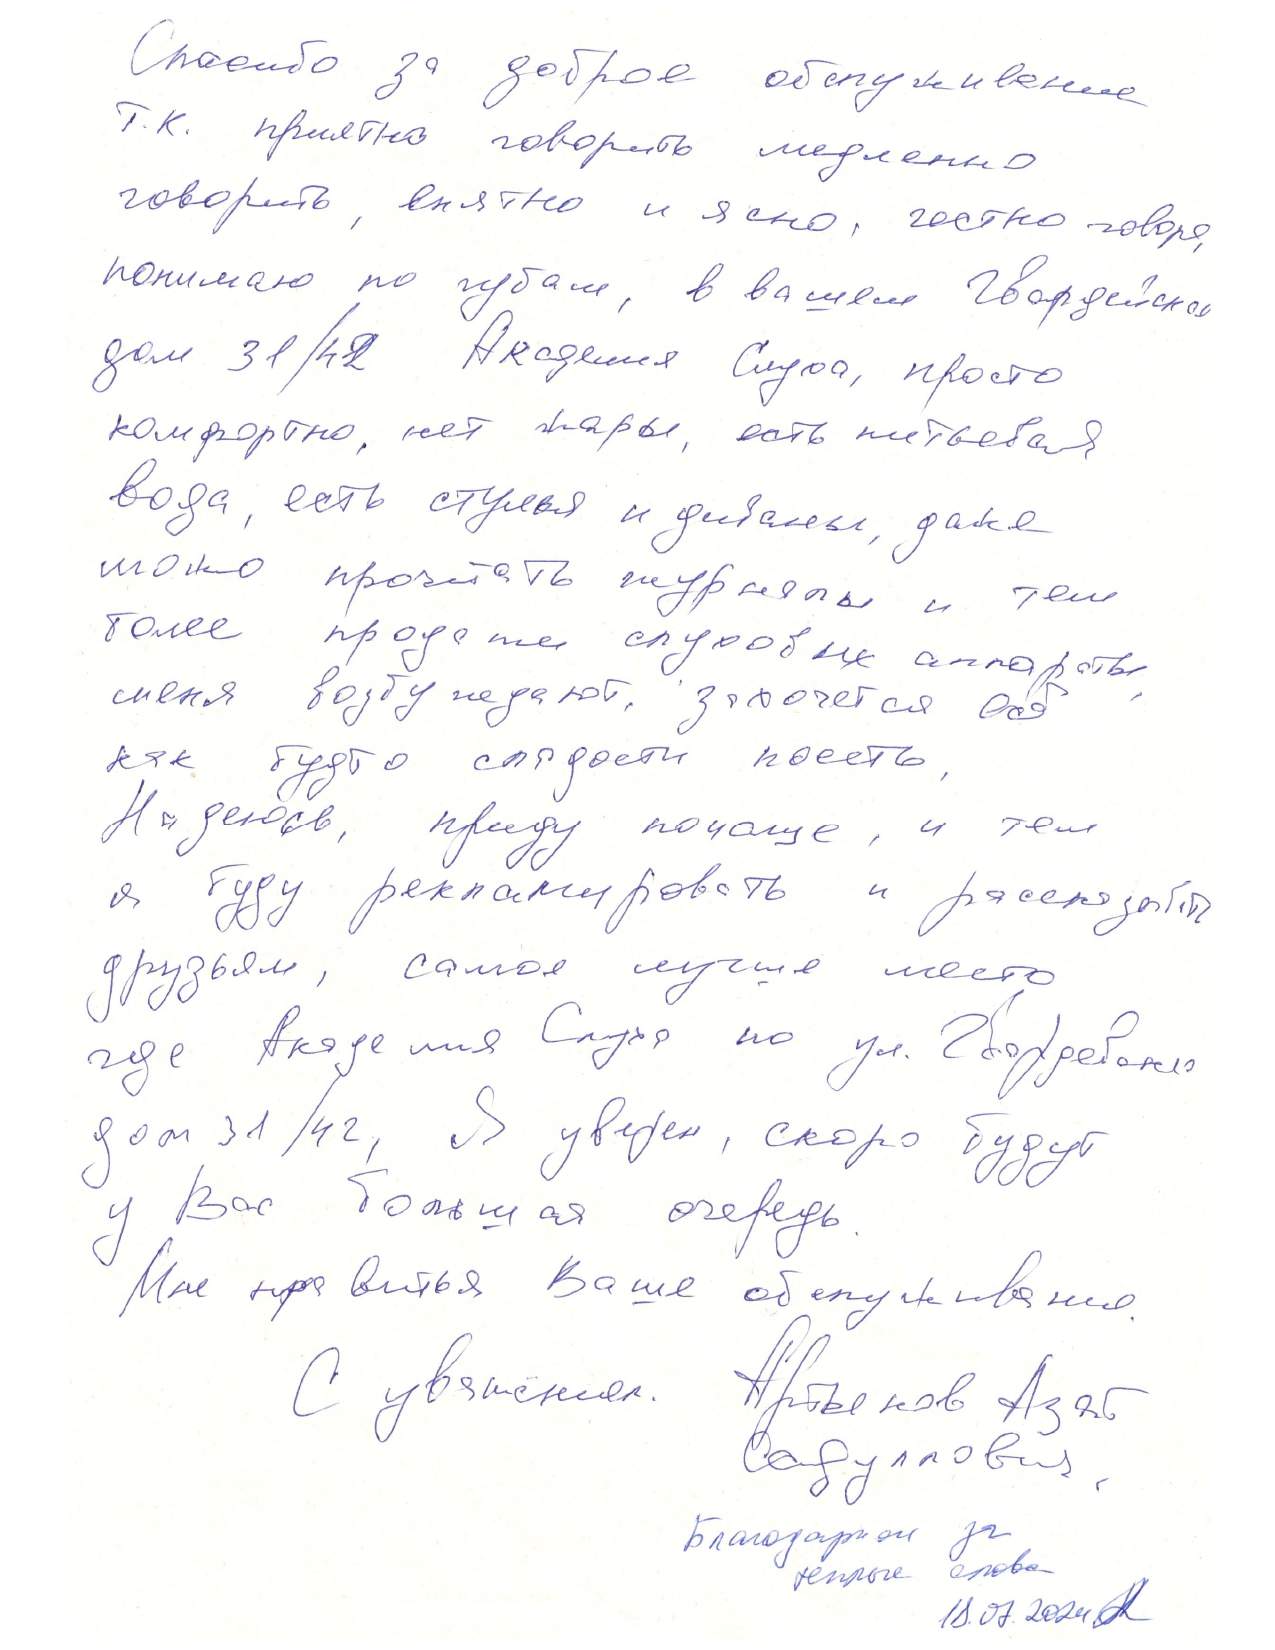 Спасибо за доброе обслуживание
т.к. приятно говорить медленно
говорить, внятно и ясно, честно говоря,
понимаю по губам, в вашем Гвардейской
дом 31/42 Академия Слуха, просто
комфортно, нет жары, есть питьевая
вода, есть стулья и диваны, даже
можно прочитать журналы и тем
более продажи слуховых аппараты,
меня возбуждают, захочется
как будто сладости поесть,
Надеюсь, приду почаще, и тем
я буду рекламировать и рассказывать
друзьям, самое лучше место
где Академия Слуха по ул.
дом 31/42, Я уверен, скоро будут
у Вас большая очередь.
Мне нравиться Ваше обслуживание.
С уважением. Азат

Благодарим за
теплые слова
18.07.2024